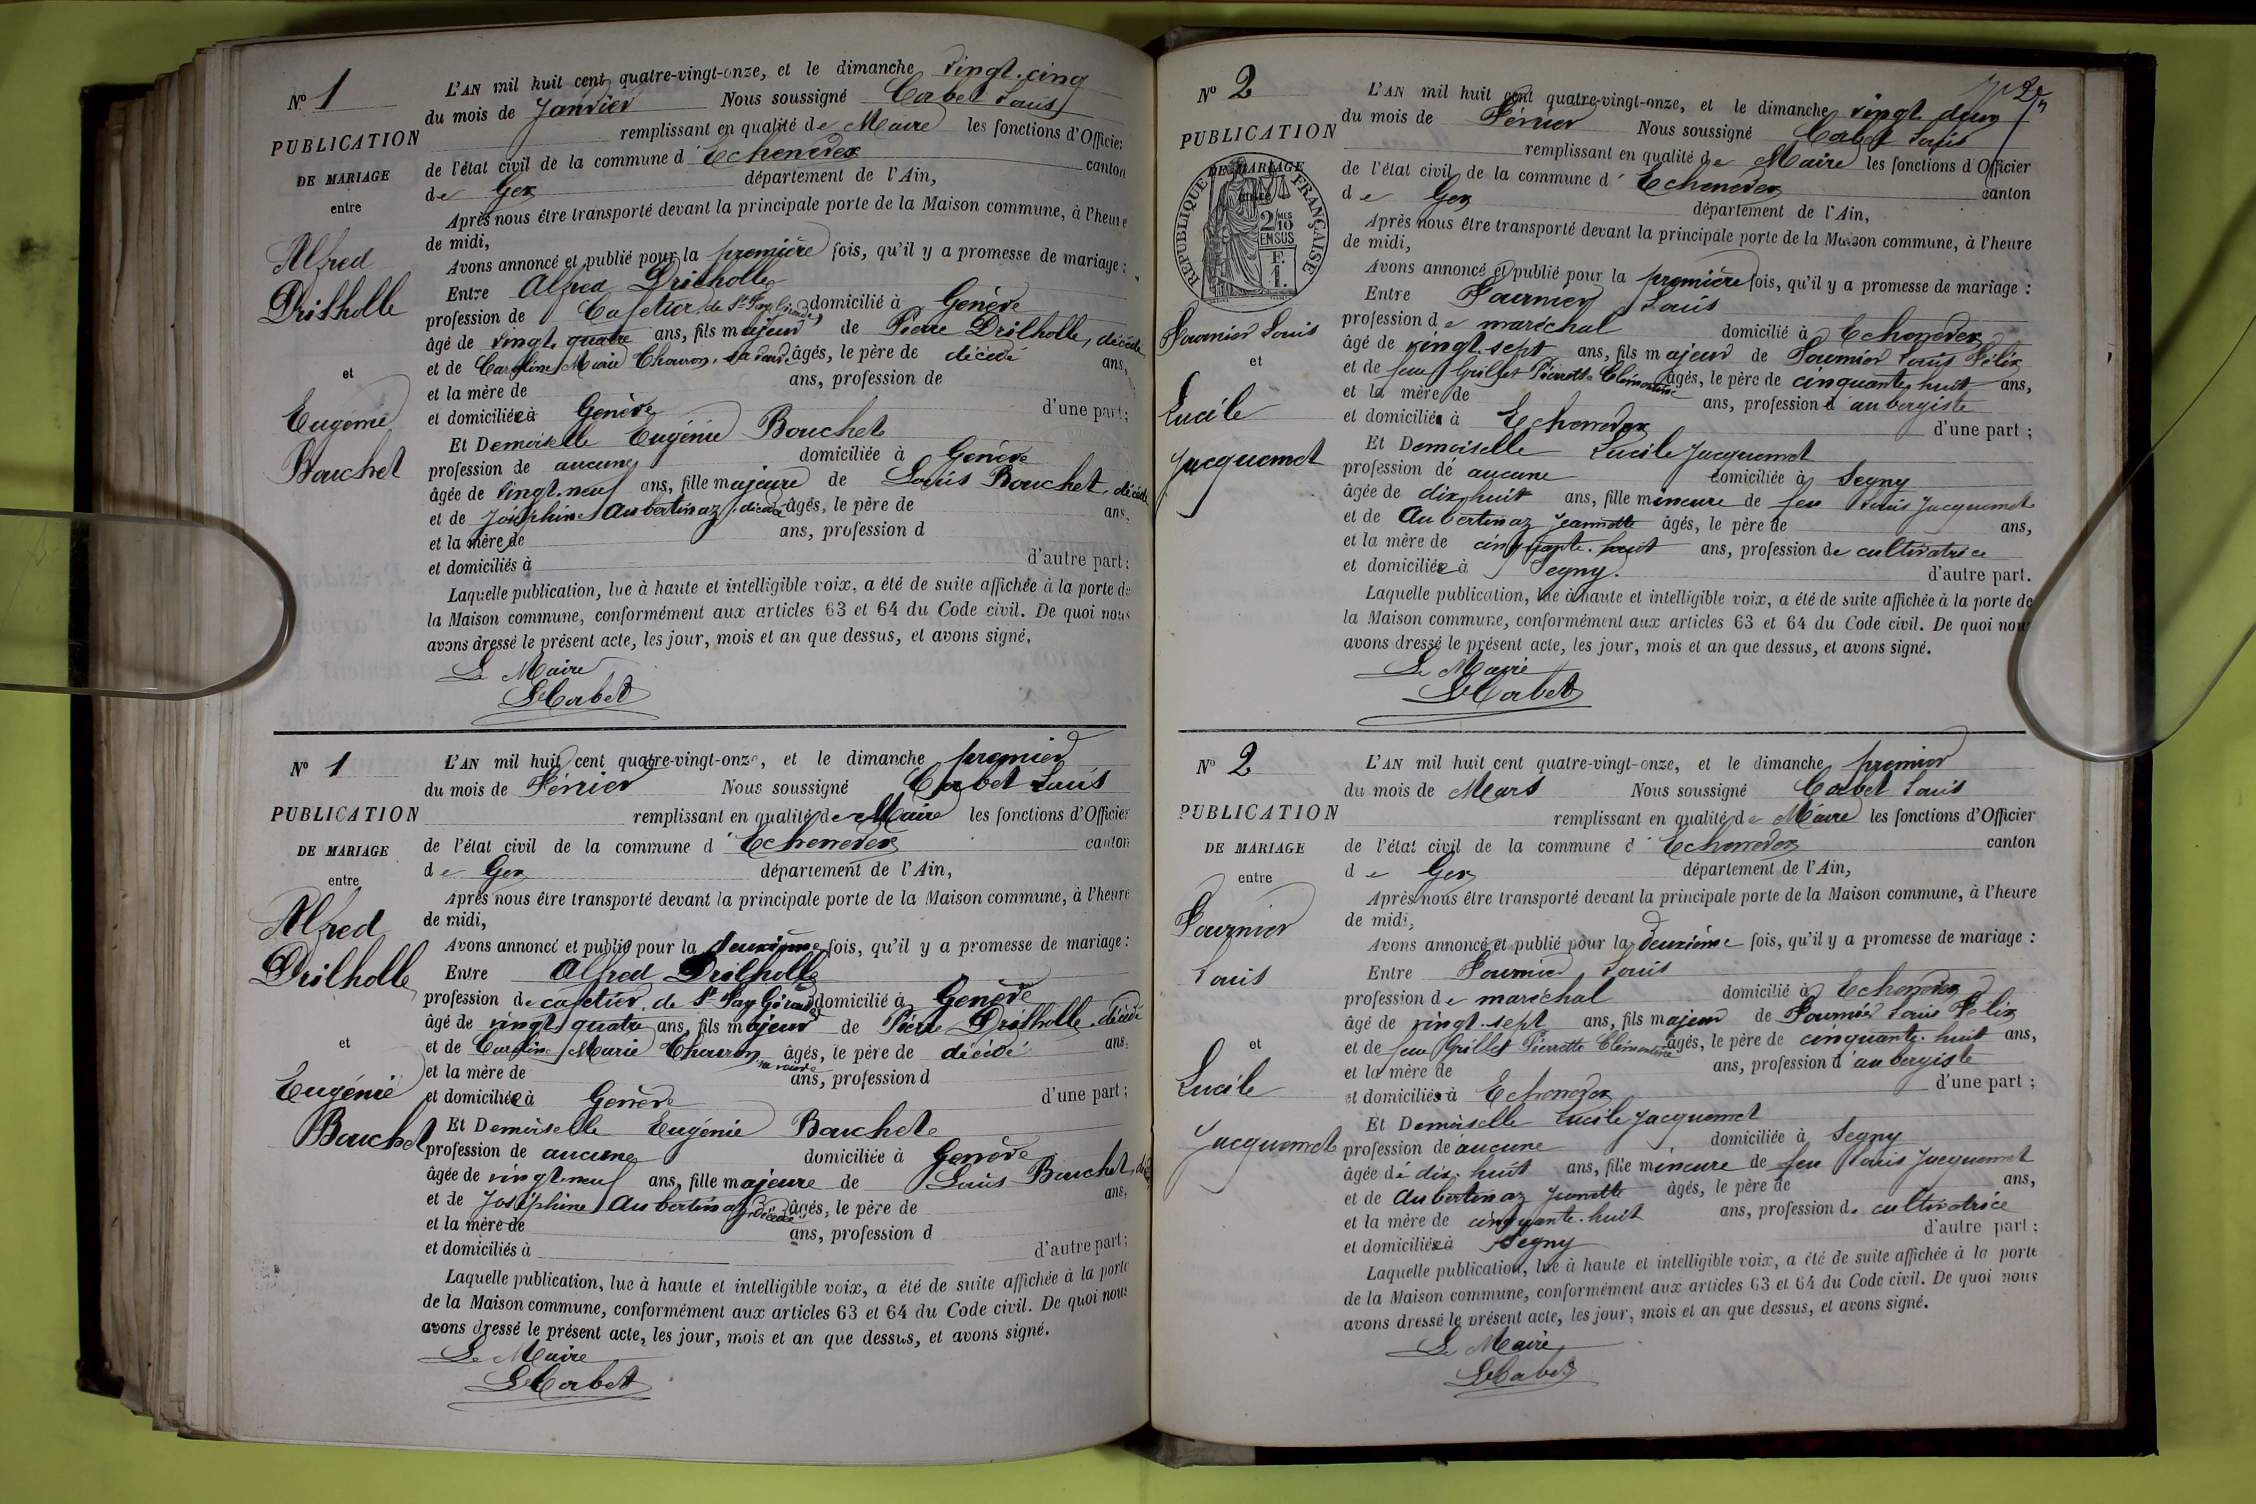 N° 1
PUBLICATION
DE MARIAGE
entre
Alfred
Drilholle
et
Eugénie
Bouchet
L'AN mil huit cent quatre-vingt-onze, et le dimanche vingt-cinq
du mois de Janvier Nous soussigné Corbet Louis
remplissant en qualité de Maire les fonctions d'Officier
de l'état civil de la commune d'Echenevex canton
de Gex département de l'Ain,
Après nous être transporté devant la principale porte de la Maison commune, à l'heure
de midi,
Avons annoncé et publié pour la première fois, qu'il y a promesse de mariage :
Entre Alfred Drilholle
profession de Cafetier de St domicilié à Genève
âgé de vingt quatre ans, fils majeur de Pierre Drilholle, décédé
et de Caroline Marie Chouron, sa veuve âgés, le père de décédé ans,
et la mère de ans, profession de
et domiciliée à Genève d'une part ;
Et Demoiselle Eugénie Bouchet
profession de aucune domiciliée à Genève
âgée de vingt-neuf ans, fille majeure de Louis Bouchet, décédé
et de Joséphine Aubertinaz, décédée âgés, le père de ans,
et la mère de ans, profession d
et domiciliés à d'autre part :
Laquelle publication, lue à haute et intelligible voix, a été de suite affichée à la porte de
la Maison commune, conformément aux articles 63 et 64 du Code civil. De quoi nous
avons dressé le présent acte, les jour, mois et an que dessus, et avons signé.
Le Maire
LCorbet
N° 1
PUBLICATION
DE MARIAGE
entre
Alfred
Drilholle
et
Eugénie
Bouchet
L'AN mil huit cent quatre-vingt-onze, et le dimanche premier
du mois de Février Nous soussigné Corbet Louis
remplissant en qualité de Maire les fonctions d'Officier
de l'état civil de la commune d'Echenevex canton
de Gex département de l'Ain,
Après nous être transporté devant la principale porte de la Maison commune, à l'heure
de midi,
Avons annoncé et publié pour la deuxième fois, qu'il y a promesse de mariage :
Entre Alfred Drilholle
profession de cafetier, de St domicilié à Genève
âgé de vingt quatre ans, fils majeur de Pierre Drilholle, décédé
et de Caroline Marie Chouron sa veuve âgés, le père de décédé ans.
et la mère de ans, profession d
et domiciliée à Genève d'une part ;
Et Demoiselle Eugénie Bouchet
profession de aucune domiciliée à Genève
âgée de vingt-neuf ans, fille majeure de Louis Bouchet,
et de Joséphine Aubertinaz, décédée âgés, le père de ans,
et la mère de ans, profession d
et domiciliés à d'autre part ;
Laquelle publication, lue à haute et intelligible voix, a été de suite affichée à la porte
de la Maison commune, conformément aux articles 63 et 64 du Code civil. De quoi nous
avons dressé le présent acte, les jour, mois et an que dessus, et avons signé.
Le Maire
LCorbet
N° 2
PUBLICATION
DE MARIAGE
entre
RÉPUBLIQUE FRANÇAISE
2/10 MES
EN SUS
F.
1.
Fournier Louis
et
Lucile
Jacquemet
L'AN mil huit cent quatre-vingt-onze, et le dimanche vingt deux
du mois de Février Nous soussigné Corbet Louis
remplissant en qualité de Maire les fonctions d'Officier
de l'état civil de la commune d'Echenevex canton
de Gex département de l'Ain,
Après nous être transporté devant la principale porte de la Maison commune, à l'heure
de midi,
Avons annoncé et publié pour la première fois, qu'il y a promesse de mariage :
Entre Fournier Louis
profession de maréchal domicilié à Echenevex
âgé de vingt-sept ans, fils majeur de Fournier Louis Félix
et de feue Grillet Pierrette Clémentine âgés, le père de cinquante huit ans,
et la mère de ans, profession d'aubergiste
et domiciliés à Echenevex d'une part ;
Et Demoiselle Lucile Jacquemet
profession de aucune domiciliée à Segny
âgée de dix huit ans, fille mineure de feu Louis Jacquemet
et de Aubertinaz Jeannette âgés, le père de ans,
et la mère de cinquante-huit ans, profession de cultivatrice
et domiciliée à Segny. d'autre part.
Laquelle publication, lue à haute et intelligible voix, a été de suite affichée à la porte de
la Maison commune, conformément aux articles 63 et 64 du Code civil. De quoi nous
avons dressé le présent acte, les jour, mois et an que dessus, et avons signé.
Le Maire
LCorbet
N° 2
PUBLICATION
DE MARIAGE
entre
Fournier
Louis
et
Lucile
Jacquemet
L'AN mil huit cent quatre-vingt-onze, et le dimanche premier
du mois de Mars Nous soussigné Corbet Louis
remplissant en qualité de Maire les fonctions d'Officier
de l'état civil de la commune d'Echenevex canton
de Gex département de l'Ain,
Après nous être transporté devant la principale porte de la Maison commune, à l'heure
de midi,
Avons annoncé et publié pour la deuxième fois, qu'il y a promesse de mariage :
Entre Fournier Louis
profession de maréchal domicilié à Echenevex
âgé de vingt-sept ans, fils majeur de Fournier Louis Félix
et de feue Grillet Pierrette Clémentine âgés, le père de cinquante-huit ans,
et la mère de ans, profession d'aubergiste
et domiciliés à Echenevex d'une part ;
Et Demoiselle Lucile Jacquemet
profession de aucune domiciliée à Segny
âgée de dix-huit ans, fille mineure de feu Louis Jacquemet
et de Aubertinaz Jeannette âgés, le père de ans,
et la mère de cinquante-huit ans, profession de cultivatrice
et domiciliée à Segny d'autre part ;
Laquelle publication, lue à haute et intelligible voix, a été de suite affichée à la porte
de la Maison commune, conformément aux articles 63 et 64 du Code civil. De quoi nous
avons dressé le présent acte, les jour, mois et an que dessus, et avons signé.
Le Maire
LCorbet